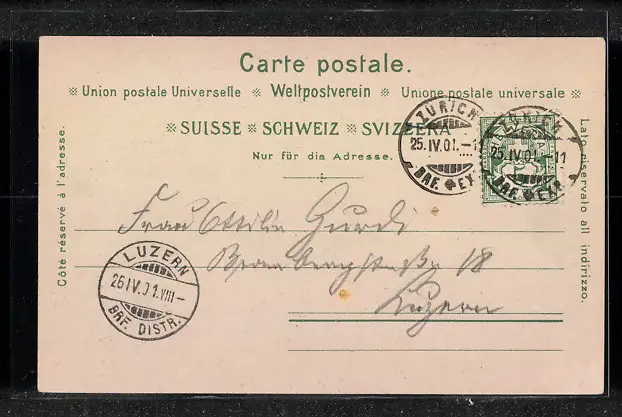 Carte postale.
※ Union postale Universelle ※ Weltpostverein ※ Unione postale universale ※
※ SUISSE ※ SCHWEIZ ※ SVIZZERA ※
Nur für die Adresse.
Côté réservé à l'adresse.
Lato riservato all indirizzo.
ZÜRICH
25.IV.01.–11
BRF. EXP.
ZÜRICH
25.IV.01.–11
BRF. EXP.
Frau Ottilie Gurdi
18
Luzern
LUZERN
26.IV.01.VIII–
BRF. DISTR.